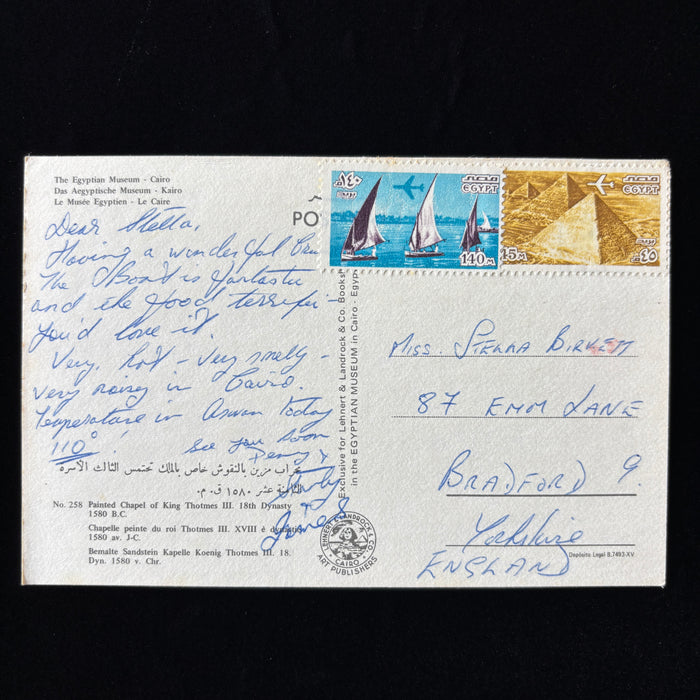 The Egyptian Museum - Cairo
Das Aegyptische Museum - Kairo
Le Musée Egyptien - Le Caire
PO
Dear Stella,
Having a wonderful
The Boat is fantastic
and the food terrific -
you'd love it.
Very hot - very smelly -
very noisy in Cairo.
Temperature in Aswan today
110° !
See you soon
Penny
&
James
محراب مزين بالنقوش خاص بالملك تحتمس الثالث الأسرة
الثامنة عشر ١٥٨٠ ق. م.
No. 258 Painted Chapel of King Thotmes III. 18th Dynasty
1580 B.C.
Chapelle peinte du roi Thotmes III. XVIII è dynastie
1580 av. J-C.
Bemalte Sandstein Kapelle Koenig Thotmes III. 18.
Dyn. 1580 v. Chr.
Exclusive for Lehnert & Landrock & Co. Booksh
in the EGYPTIAN MUSEUM in Cairo - Egyp
LEHNERT & LANDROCK & CO.
CAIRO
ART PUBLISHERS
١٤٠م
مصر
EGYPT
بريد
140 M
مصر
EGYPT
بريد
45M
٤٥م
MISS. BIRKETT
87 EMM LANE
BRADFORD 9.
Yorkshire
ENGLAND
Depósito Legal B.7493-XV